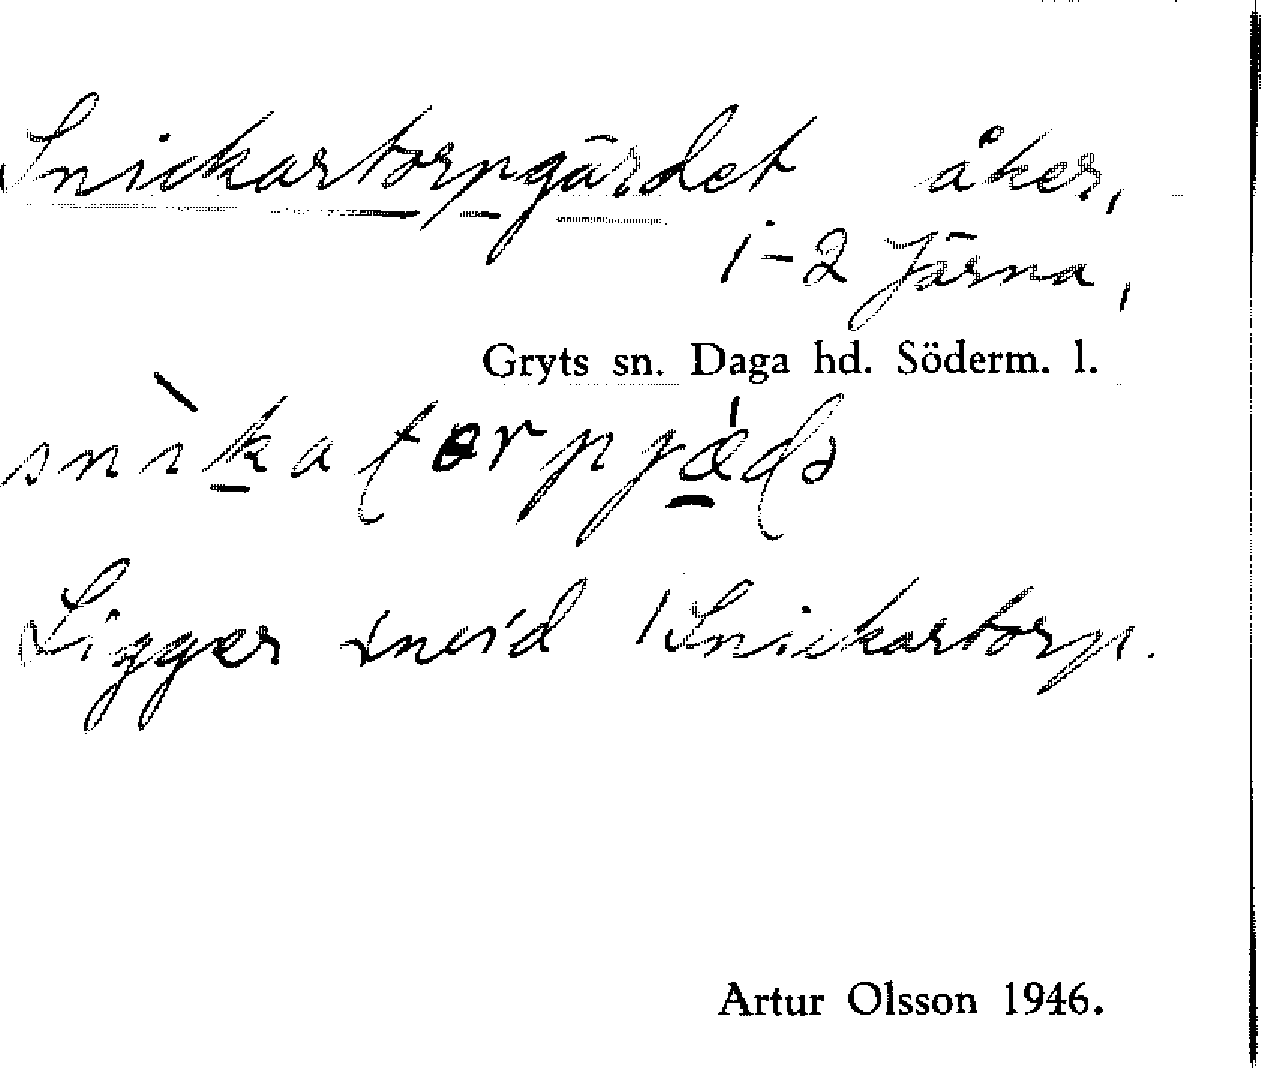 Snickartorpgärdet åker,
1-2 Järna,
Gryts sn. Daga hd. Söderm. l.
Ligger vid Snickartorp.
Artur Olsson 1946.